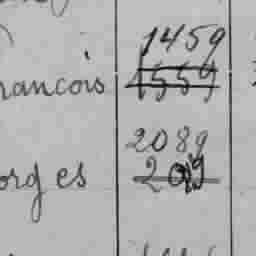 1459
rancois 1559
2089
orges